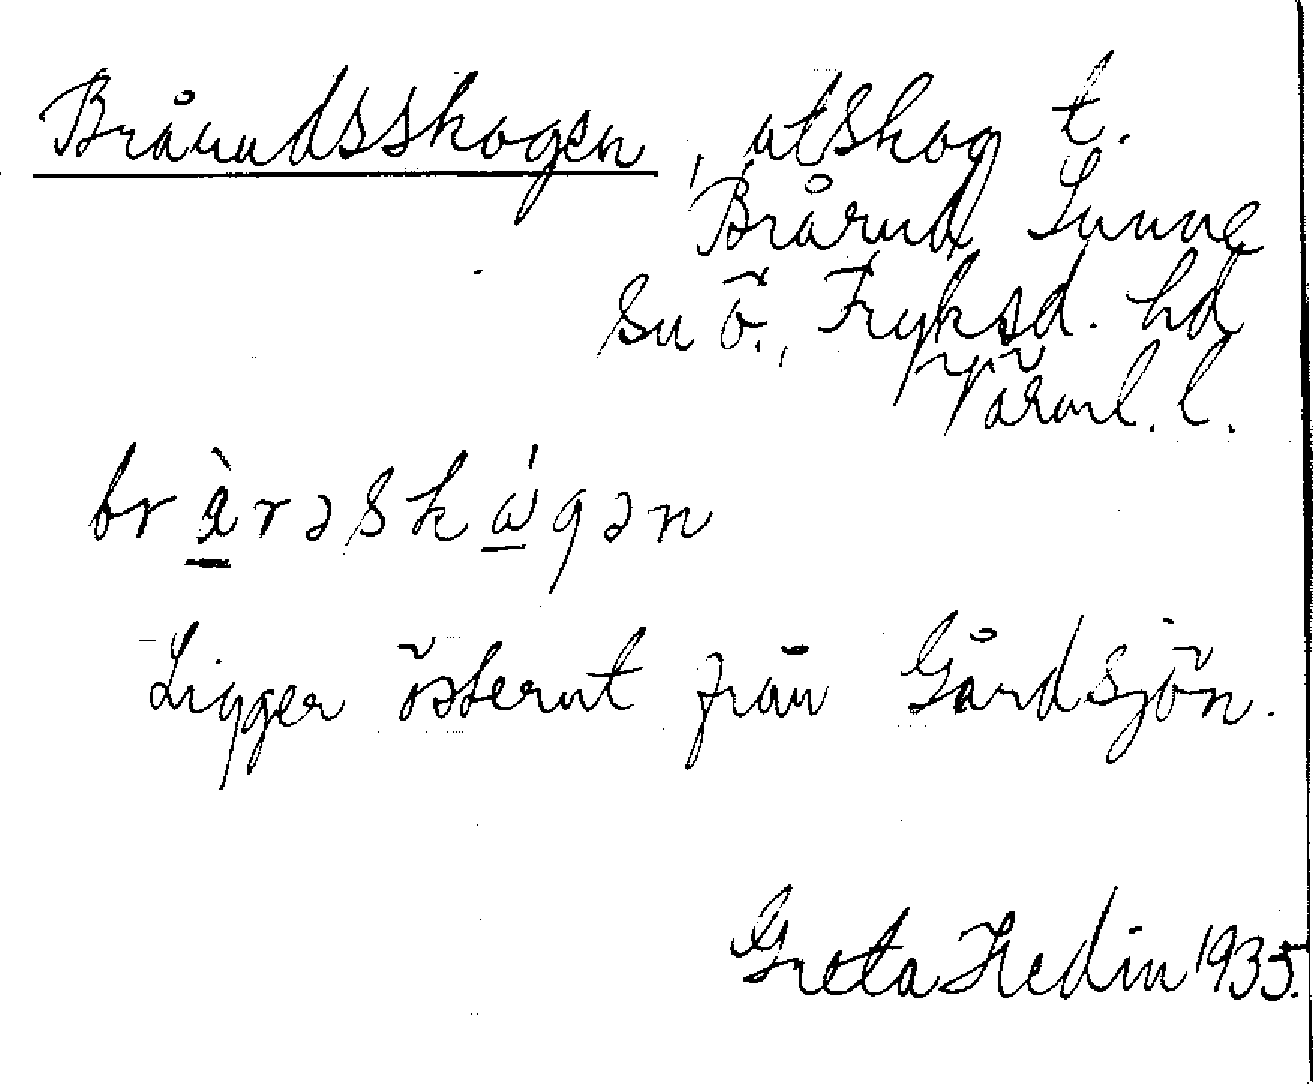 Brårudsskogen, utskog t.
Brårud Sunne
sn Ö., Fryksd. hd
Värml. l.
br<u>à</u>rəsk<u>ώ</u>gən
Ligger österut från Gårdsjön.
Greta Hedin 1935.